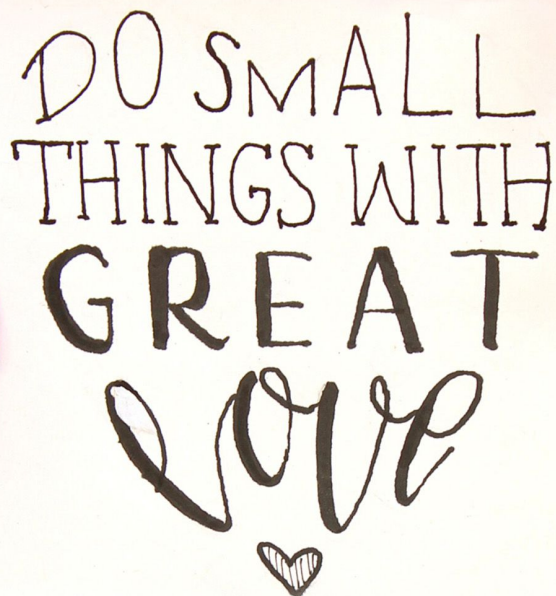 DO SMALL
THINGS WITH
GREAT
love